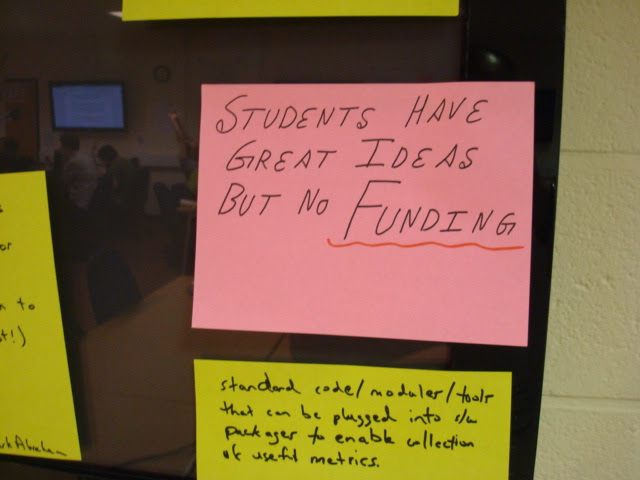 STUDENTS HAVE
GREAT IDEAS
BUT NO FUNDING
or
n to
st!)
standard code/modules/tools
that can be plugged into s/w
packages to enable collection
of useful metrics.